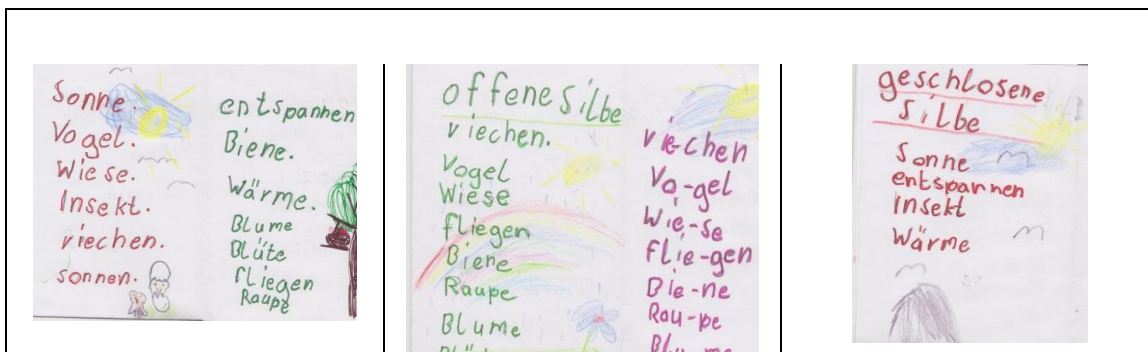 Sonne.
Vogel.
Wiese.
Insekt.
viechen.
sonnen.
entspannen
Biene.
Wärme.
Blume
Blüte
fliegen
Raupe
offene Silbe
viechen.
Vogel
Wiese
fliegen
Biene
Raupe
Blume
vie-chen
Vo-gel
Wie-se
Flie-gen
Bie-ne
Rau-pe
geschlosene
Silbe
Sonne
entspannen
Insekt
Wärme